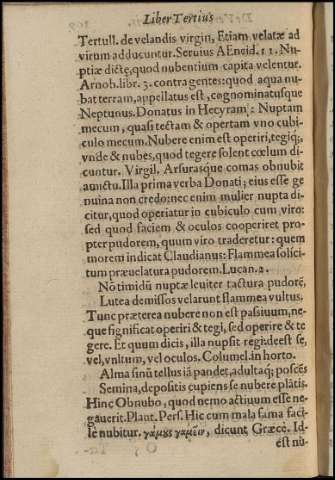 Liber Tertius
Tertull. de velandis virgin, Etiam velatæ ad
virum adducuntur. Seruius AEneid. 11. Nu-
ptiæ dictę, quod nubentium capita velentur.
Arnob. libr. 3. contra gentes: quod aqua nu-
bat terram, appellatus est, cognominatusque
Neptunus. Donatus in Hecyram: Nuptam
mecum, quasi tectam & opertam vno cubi-
culo mecum. Nubere enim est operiri, tegiq;,
vnde & nubes, quod tegere solent cœlum di-
cuntur. Virgil. Arsurasque comas obnubit
amictu. Illa prima verba Donati; eius esse ge
nuina non credo: nec enim mulier nupta di-
citur, quod operiatur in cubiculo cum viro:
sed quod faciem & oculos cooperiret pro-
pter pudorem, quum viro traderetur: quem
morem indicat Claudianus: Flammea solici-
tum præuelatura pudorem. Lucan. 2.
Nō timidū nuptæ leuiter tactura pudorē,
Lutea demissos velarunt flammea vultus.
Tunc præterea nubere non est passiuum, ne-
que significat operiri & tegi, sed operire & te
gere. Et quum dicis, illa nupsit regi deest se,
vel, vultum, vel oculos. Columel. in horto.
Alma sinū tellus iā pandet, adultaq; poscēs
Semina, depositis cupiens se nubere plātis.
Hinc Obnubo, quod nemo actiuum esse ne-
gauerit. Plaut. Pers. Hic cum mala fama faci-
le nubitur. γάμους γαμεῖν, dicunt Græcè. Id-
est nu-